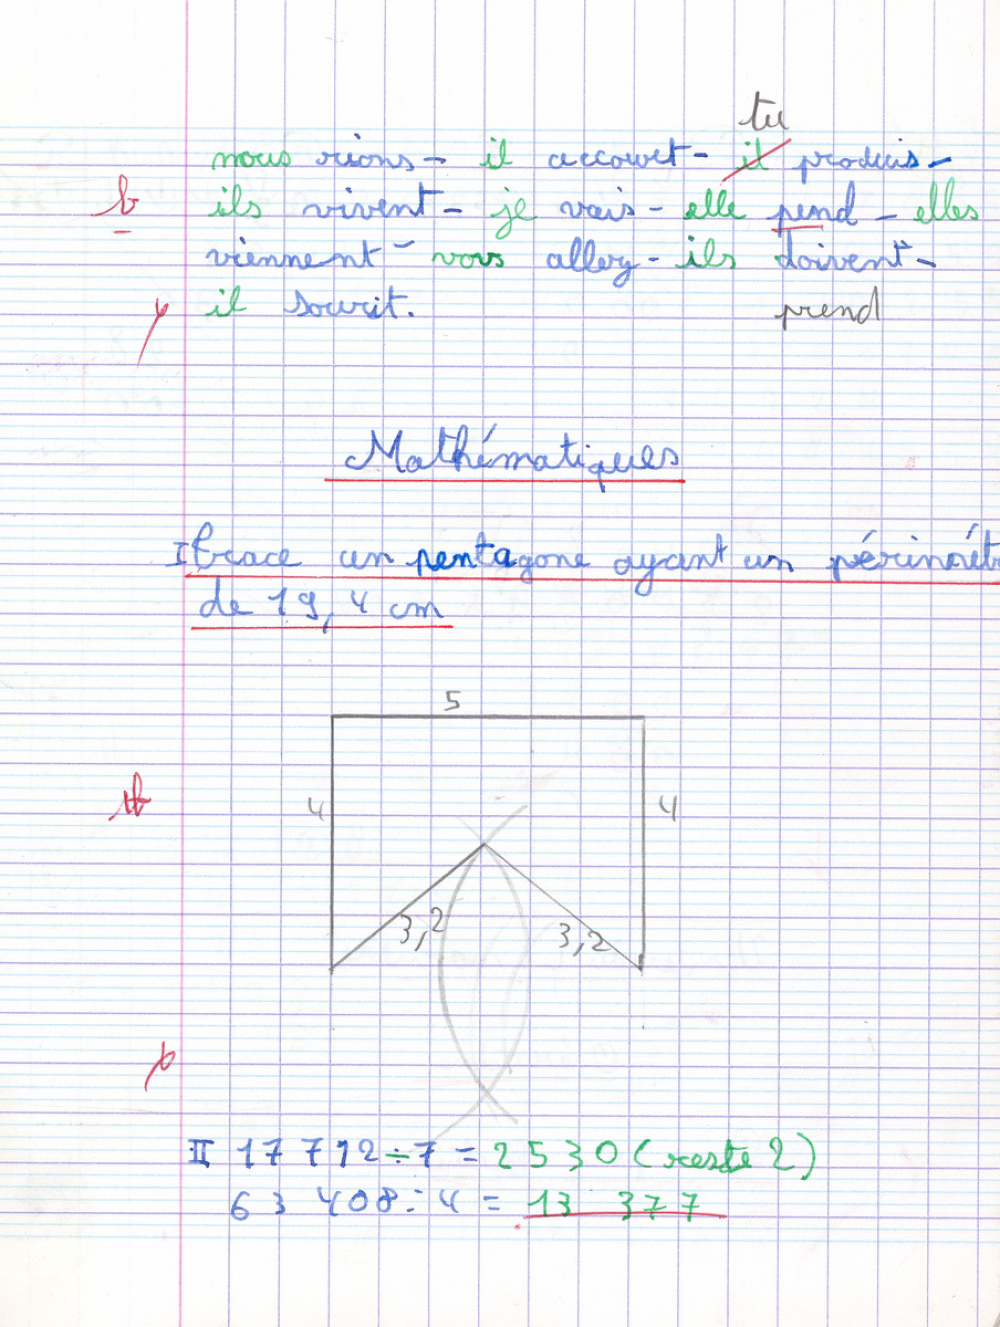 tu
nous rions - il accourt - il produis -
b ils vivent - je vais - elle pend - elles
viennent - vous allez - ils doivent -
il sourit. prend
Mathématiques
I trace un pentagone ayant un périmèt
de 19,4 cm
5
4 4
tb
3,2 3,2
II 17 712 ÷ 7 = 2530 (reste 2)
63 408 : 4 = 13 377